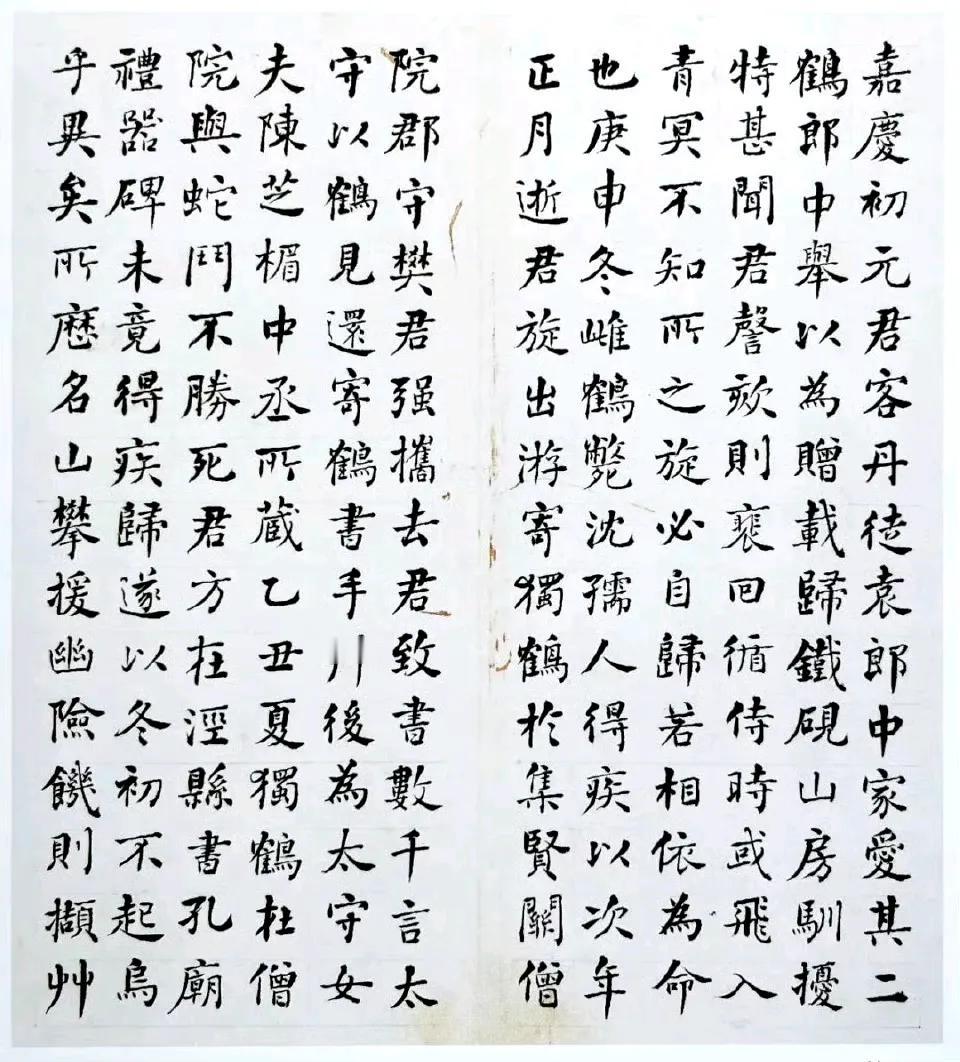 嘉慶初元君客丹徒袁郎中家愛其二
鶴郎中舉以為贈載歸鐵硯山房馴擾
特甚聞君謦欬則裵回循侍時或飛入
青冥不知所之旋必自歸若相依為命
也庚申冬雌鶴斃沈孺人得疾以次年
正月逝君旋出游寄獨鶴於集賢關僧
院郡守樊君强攜去君致書數千言太
守以鶴見還寄鶴書手川後為太守女
夫陳芝楣中丞所藏乙丑夏獨鶴在僧
院與蛇鬥不勝死君方在涇縣書孔廟
禮器碑未竟得疾歸遂以冬初不起烏
乎異矣所歷名山攀援幽險饑則擷艸